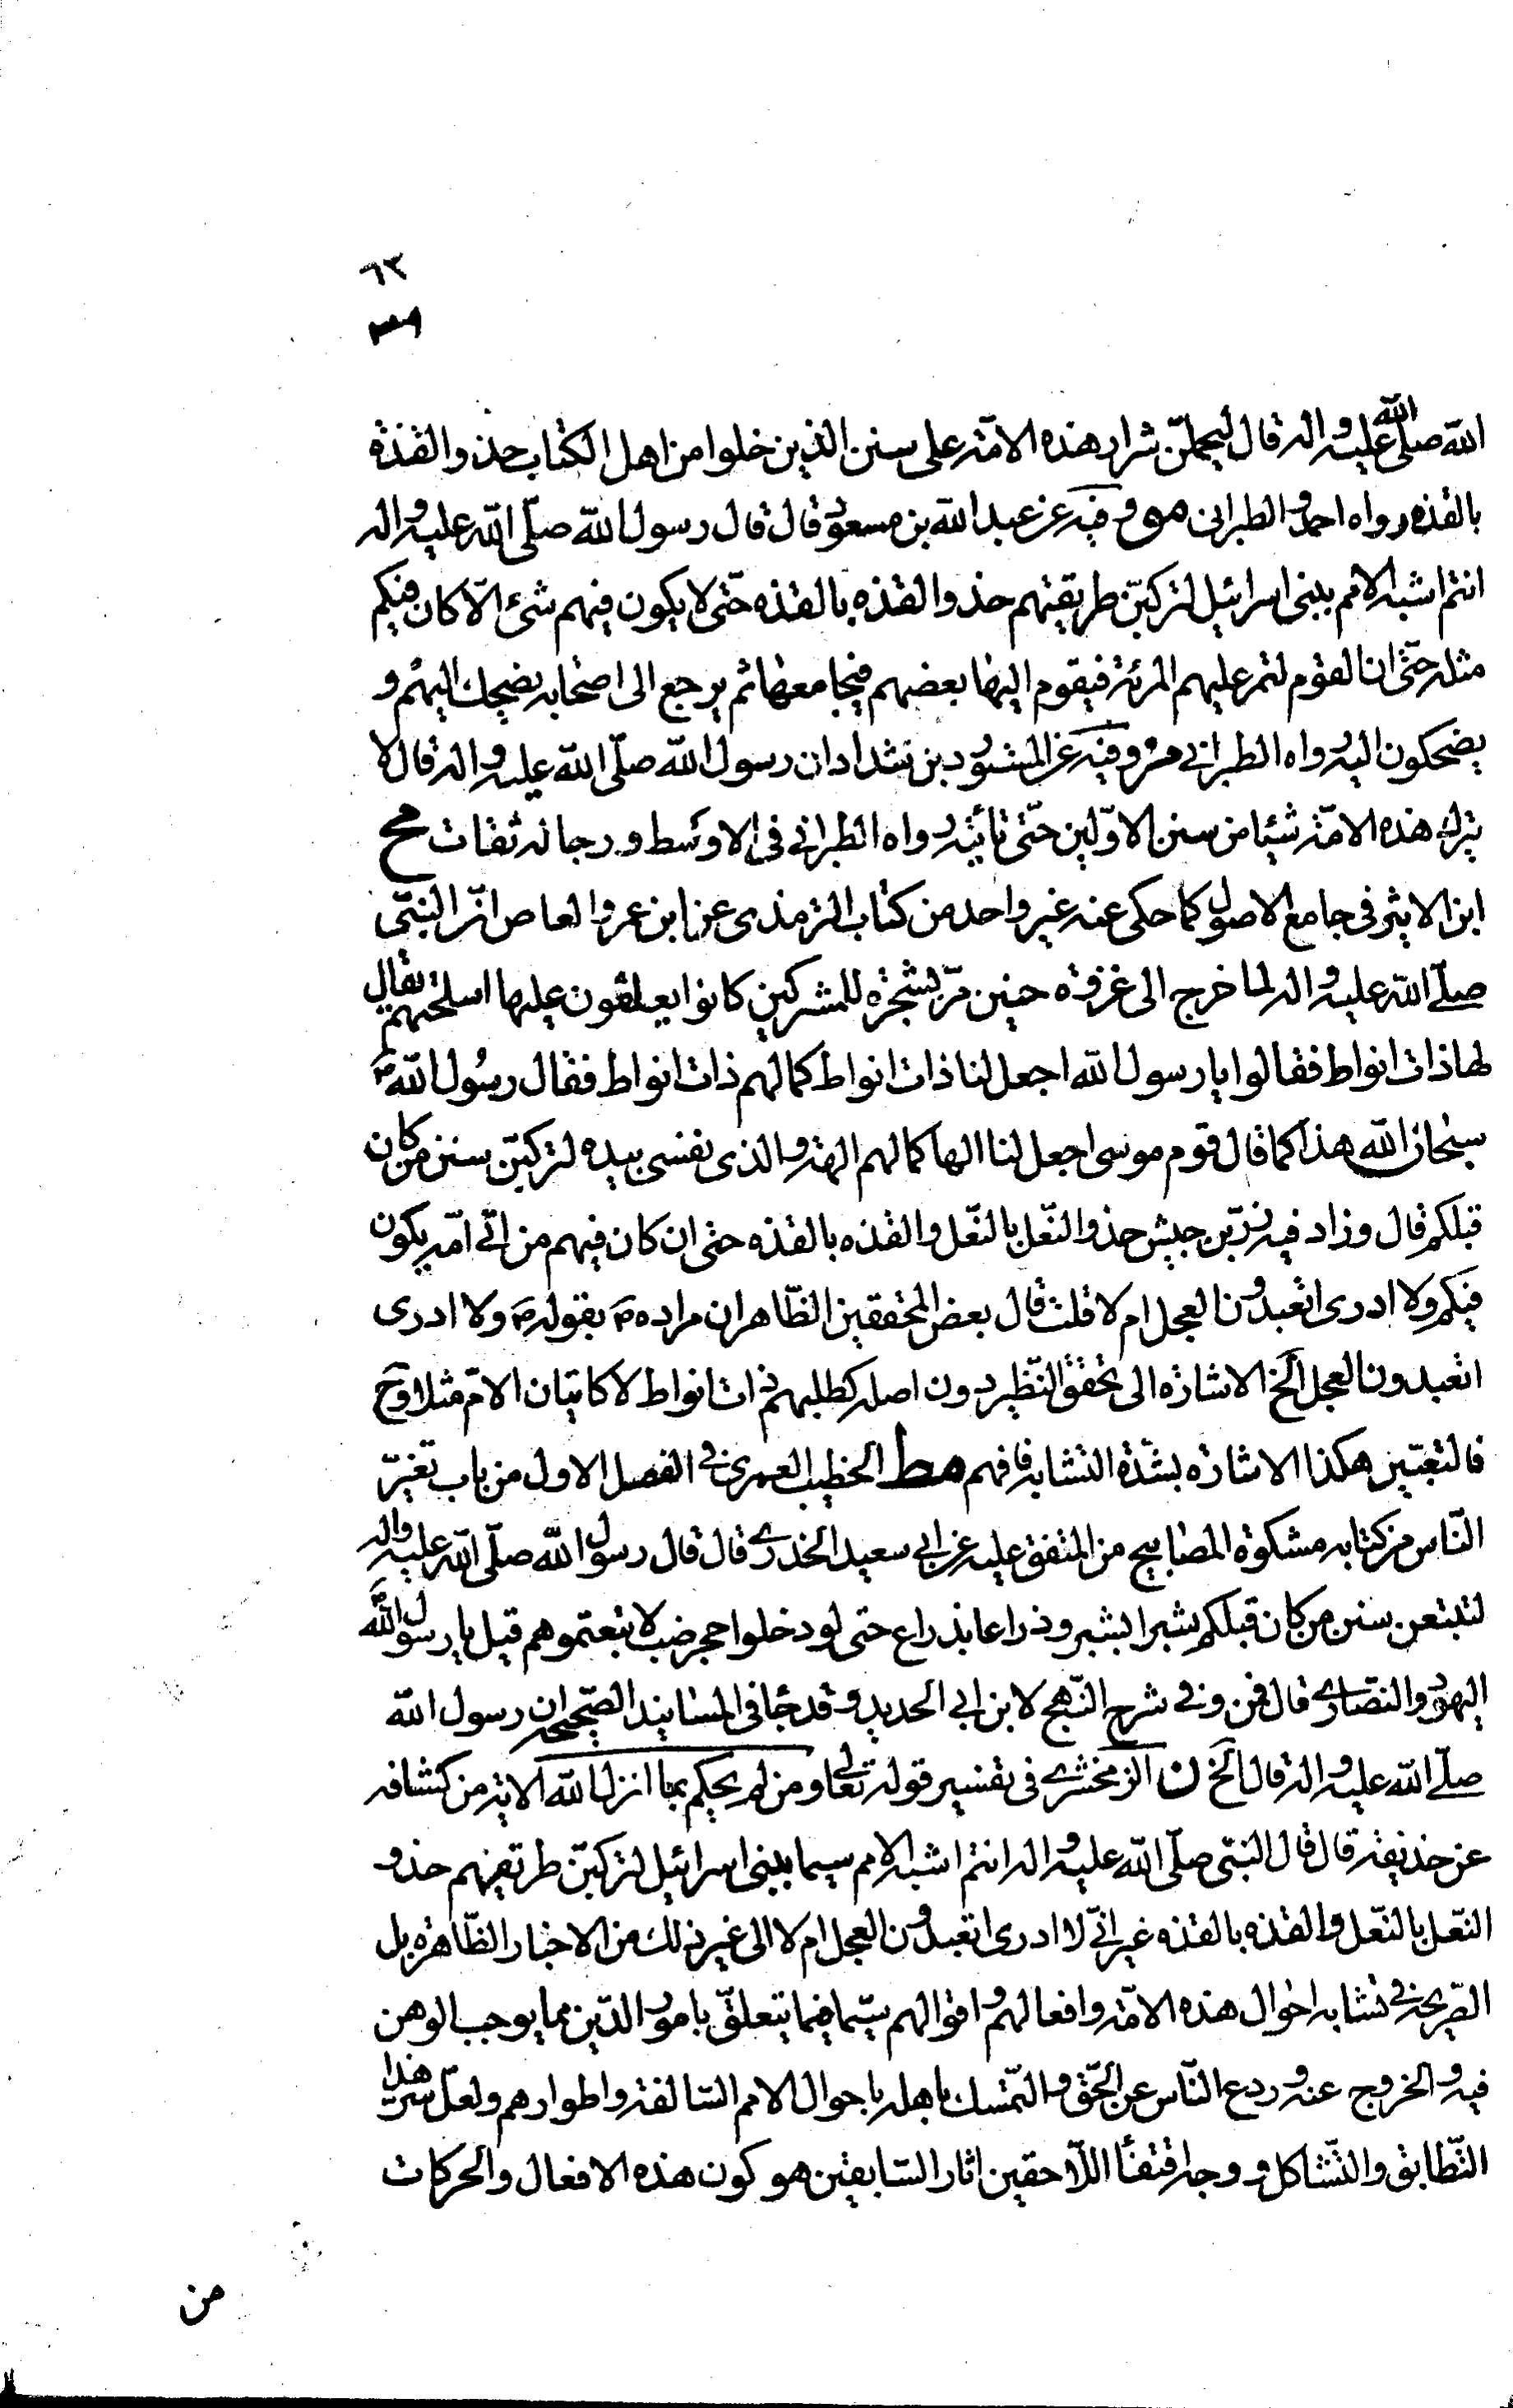 ٦٢
الله صلى الله عليه واله قال ليحملنّ شرار هذه الامّة على سنن الذين خلوا من اهل الكتاب حذو القذة
بالقذه رواه احمد والطبرانى مو وفيه عن عبد الله بن مسعود قال قال رسول الله صلّى الله عليه واله
انتم اشبه الامم ببنى اسرائيل لتركبنّ طريقتهم حذو القذه بالقذه حتّى لا يكون فيهم شئ الّا كان فيكم
مثله حتّى ان القوم لتمر عليهم المرئة فيقوم اليها بعضهم فيجامعها ثم يرجع الى اصحابه يضحك اليهم و
يضحكون اليه رواه الطبراني وفيه عن المستورد بن شداد ان رسول الله صلّى الله عليه واله قال لا
يترك هذه الامّة شيئا من سنن الاوّلين حتّى تاتيه رواه الطبراني في الاوسط ورجاله ثقات مح
ابن الاثير فى جامع الاصول كما حكى عنه غير واحد من كتاب الترمذى عن ابن عمرو العاص انّ النبىّ
صلّى الله عليه واله لما خرج الى غزوة حنين مرّ بشجرة للمشركين كانوا يعلقون عليها اسلحتهم يقال
لها ذات انواط فقالوا يا رسول الله اجعل لنا ذات انواط كما لهم ذات انواط فقال رسول الله ص
سبحان الله هذا كما قال قوم موسى اجعل لنا الها كما لهم الهة والذى نفسى بيده لتركبنّ سنن من كان
قبلكم قال وزاد فيه زرّ بن حبيش حذو النّعل بالنّعل والقذه بالقذه حتى ان كان فيهم من اتى امّه يكون
فيكم ولا ادرى اتعبدون العجل ام لا قلت قال بعض المحققين الظّاهر ان مراده ص بقوله ص ولا ادرى
اتعبدون العجل الخ الاشارة الى تحقق النّظير دون اصله كطلبهم ذات انواط لا كاتيان الامّ مثلا وح
فالتعبير هكذا الاشارة لشدّة التشابه فافهم مط الخطيب العمرى فى الفصل الاول من باب تغيّر
النّاس من كتابه مشكوة المصابيح من المتفق عليه عن ابي سعيد الخدري قال قال رسول الله صلّى الله عليه واله
لتتبعن سنن من كان قبلكم شبرا بشبر وذراعا بذراع حتى لو دخلوا جحر ضب لاتبعتموهم قيل يا رسول الله
اليهود والنصارى قال فمن وفي شرح النّهج لابن ابي الحديد وقد جاء فى المسانيد الصّحيحه ان رسول الله
صلّى الله عليه واله قال الخ ن الزمخشري فى تفسير قوله تعالى ومن لم يحكم بما انزل الله الاية من كشافه
عن حذيفة قال قال النبّى صلّى الله عليه واله انتم اشبه الامم سيما ببنى اسرائيل لتركبنّ طريقتهم حذو
النّعل بالنّعل والقذه بالقذه غير انّي لا ادرى اتعبدون العجل ام لا الى غير ذلك من الاخبار الظّاهرة بل
الصّريحة في تشابه احوال هذه الامّة وافعالهم واقوالهم سيّما فيما يتعلّق بامور الدّين مما يوجب الوهن
فيه والخروج عنه وردع النّاس عن الحقّ والتّمسك باهله باحوال الامم السّالفة واطوارهم ولعلّ سرّ هذا
التّطابق والتّشاكل ووجه اقتفاء اللّاحقين اثار السّابقين هو كون هذه الافعال والحركات
من